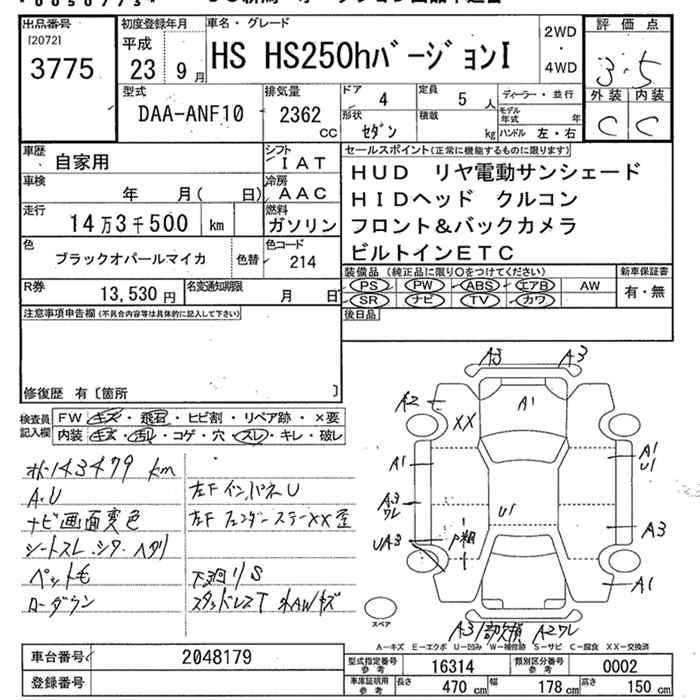 出品番号
[2072]
3775
初度登録年月
平成
23 9月
車名・グレード
HS HS250hバージョンI
2WD
・
4WD
評価点
3.5
外装 内装
C C
型式
DAA-ANF10
排気量
2362
cc
ドア 4
定員 5 人
形状 セダン
積載 kg
ディーラー・並行
モデル年式 年
ハンドル 左・右
車歴
自家用
シフト
IAT
車検
年 月( 日)
冷房
AAC
走行
14万3千500 km
燃料
ガソリン
色
ブラックオパールマイカ
色替
色コード
214
R券
13,530円
名変通知期限
月 日
セールスポイント(正常に機能するものに限ります)
HUD リヤ電動サンシェード
HIDヘッド クルコン
フロント&バックカメラ
ビルトインETC
装備品(純正品に限り○をつけてください)
PS PW ABS エアB AW
SR ナビ TV カワ
新車保証書
有・無
後日品
注意事項申告欄(不具合内容等は具体的に記入して下さい)
修復歴 有〔箇所 〕
検査員
記入欄
FW キズ・飛石・ヒビ割・リペア跡・×要
内装 キズ・汚れ・コゲ・穴・スレ・キレ・破レ
143479 km
A.U
ナビ画面変色
シートスレ.シワ.ヘタリ
ペット毛
ローダウン
左F インパネU
左F フェンダーステーXX歪
下廻りS
スタッドレスT 木AWキズ
A3 A3
A2 XX A1
A1 A1
U1
A3 ワレ U1
A3
UA3
A1
A3 部欠損 A2ワレ
スペア
A-キズ E-エクボ U-凹み W-補修跡 S-サビ C-腐食 XX-交換済
車台番号
2048179
登録番号
型式指定番号
参考
16314
類別区分番号
参考
0002
車庫証明用
参考
長さ 470 cm
幅 178 cm
高さ 150 cm